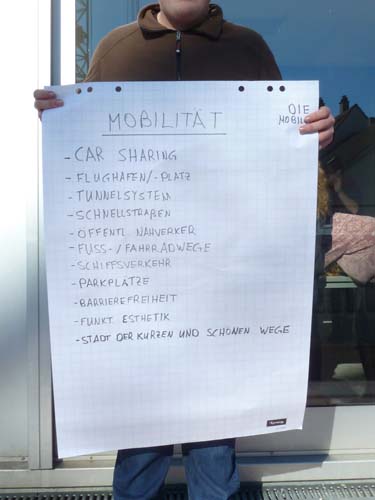 MOBILITÄT
DIE
MOBIL
- CAR SHARING
- FLUGHAFEN/-PLATZ
- TUNNELSYSTEM
- SCHNELLSTRAßEN
- ÖFFENTL. NAHVERKER
- FUSS-/FAHRRADWEGE
- SCHIFFSVERKEHR
- PARKPLÄTZE
- BARRIEREFREIHEIT
- FUNKT. ESTHETIK
- STADT DER KURZEN UND SCHÖNEN WEGE